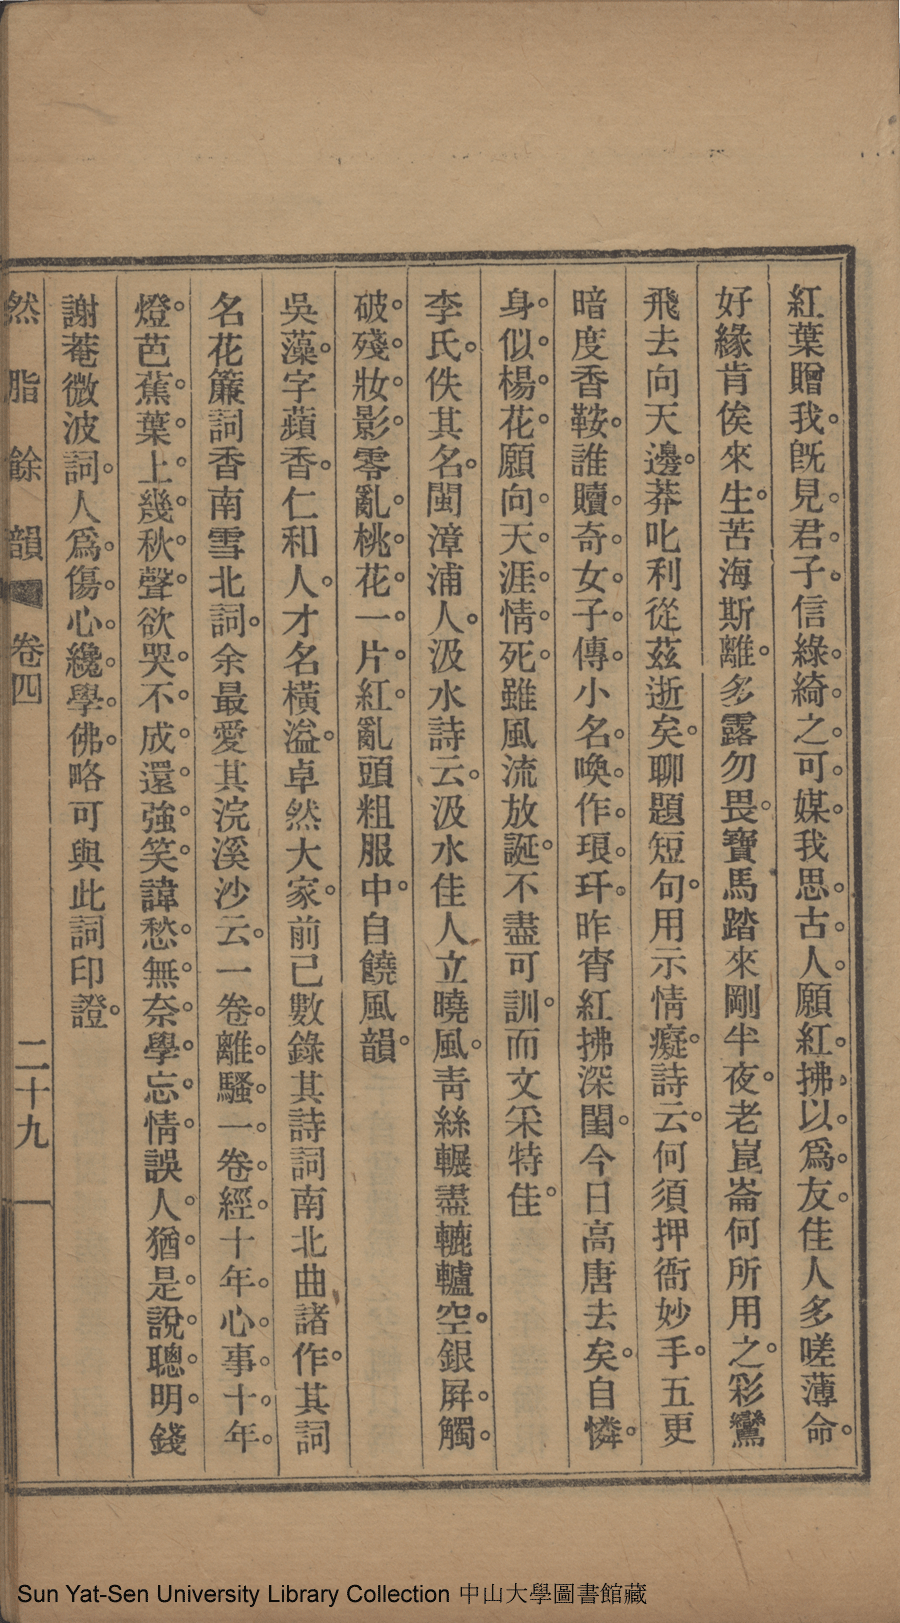 紅葉贈我。既見君子。信綠綺之可媒。我思古人。願紅拂以爲友。佳人多嗟薄命。
好緣肯俟來生。苦海斯離。多露勿畏。寶馬踏來剛半夜。老崑崙何所用之。彩鸞
飛去向天邊。莽叱利從茲逝矣。聊題短句。用示情癡。詩云。何須押衙妙手。五更
暗度香鞍。誰贖奇女子。傳小名喚作琅玕。昨宵紅拂深閨。今日高唐去矣。自憐
身似楊花。願向天涯情死。雖風流放誕。不盡可訓。而文采特佳。
李氏。佚其名。閩漳浦人。汲水詩云。汲水佳人立曉風。青絲輾盡轆轤空。銀屛觸
破殘妝影。零亂桃花一片紅。亂頭粗服中。自饒風韻。
吳藻。字蘋香。仁和人。才名橫溢。卓然大家。前已數錄其詩詞南北曲諸作。其詞
名花簾詞香南雪北詞。余最愛其浣溪沙云。一卷離騷一卷經。十年心事十年
燈。芭蕉葉上幾秋聲。欲哭不成還強笑。諱愁無奈學忘情。誤人猶是說聰明。錢
謝菴微波詞。人爲傷心纔學佛。略可與此詞印證。
然脂餘韻 卷四 二十九
Sun Yat-Sen University Library Collection 中山大學圖書館藏